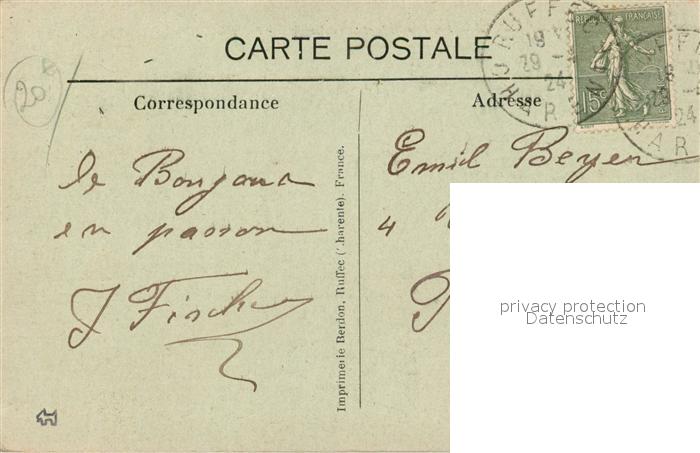 CARTE POSTALE
Correspondance
Adresse
RUFFEC
CHARENTE
18
29 -
24
REPUBLIQUE FRANÇAISE
15c
20
Emil Beyer
4
le Bonjour
en passon
J Fischer
Imprimerie Berdon, Ruffec (Charente). France.
privacy protection
Datenschutz